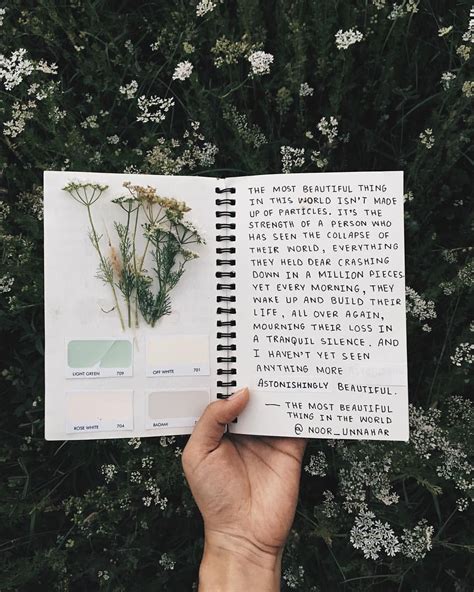 LIGHT GREEN 709
OFF WHITE 701
ROSE WHITE 704
BADAM
THE MOST BEAUTIFUL THING
IN THIS WORLD ISN'T MADE
UP OF PARTICLES. IT'S THE
STRENGTH OF A PERSON WHO
HAS SEEN THE COLLAPSE OF
THEIR WORLD, EVERYTHING
THEY HELD DEAR CRASHING
DOWN IN A MILLION PIECES
YET EVERY MORNING, THEY
WAKE UP AND BUILD THEIR
LIFE, ALL OVER AGAIN,
MOURNING THEIR LOSS IN
A TRANQUIL SILENCE. AND
I HAVEN'T YET SEEN
ANYTHING MORE
ASTONISHINGLY BEAUTIFUL.
— THE MOST BEAUTIFUL
THING IN THE WORLD
@NOOR_UNNAHAR